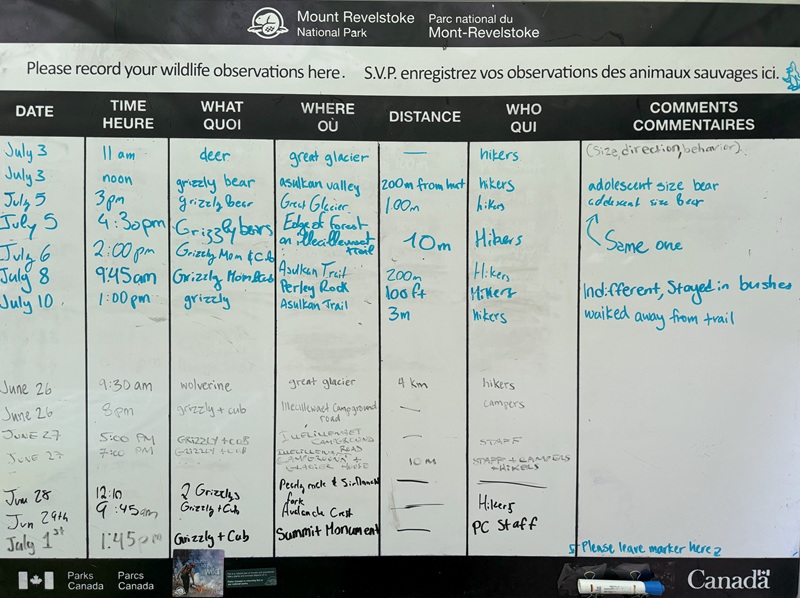 Mount Revelstoke National Park
Parc national du Mont-Revelstoke
Please record your wildlife observations here. S.V.P. enregistrez vos observations des animaux sauvages ici.
DATE TIME HEURE WHAT QUOI WHERE OÙ DISTANCE WHO QUI COMMENTS COMMENTAIRES
(Size, direction, behavior)
July 3 11 am deer great glacier — hikers
July 3 noon grizzly bear asulkan valley 200m from hut hikers adolescent size bear
July 5 3pm grizzly bear Great Glacier 100m hikers adolescent size bear
July 5 4:30pm Grizzly bears Edge of Forest on illecillewaet trail 10m Hikers Same one
July 6 2:00pm Grizzly Mom & Cub
July 8 9:45am Grizzly Mom & Cub Asulkan Trail 200m Hikers
Perley Rock 100ft Hikers Indifferent, Stayed in bushes
July 10 1:00pm grizzly Asulkan Trail 3m hikers walked away from trail
June 26 9:30 am wolverine great glacier 4 km hikers
June 26 8pm grizzly + cub Illecillewaet Campground road — campers
JUNE 27 5:00 PM GRIZZLY + CUB ILLECILLEWAET CAMPGROUND — STAFF
JUNE 27 7:00 PM GRIZZLY + CUB ILLECILLEWAET ROAD CAMPGROUND + GLACIER HOUSE 10m STAFF + CAMPERS + HIKERS
Jun 28 12:10 2 Grizzlys Pearly rock & Sir Donald fork —
Jun 29th 9:45am Grizzly + Cub Avalanche Crest — Hikers
July 1st 1:45pm Grizzly + Cub Summit Monument — PC Staff
Please leave marker here
Parks Canada
Parcs Canada
Canada